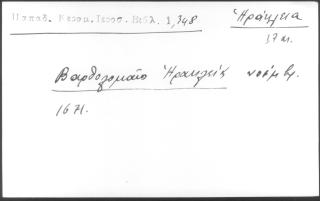 Παπαδ. Κεραμ. Ιεροσ. Βιβλ. 1,348
Ἡράκλεια
17 αι.
Βαρθολομαῖο Ἡρακλείας νοέμβρ.
1671.